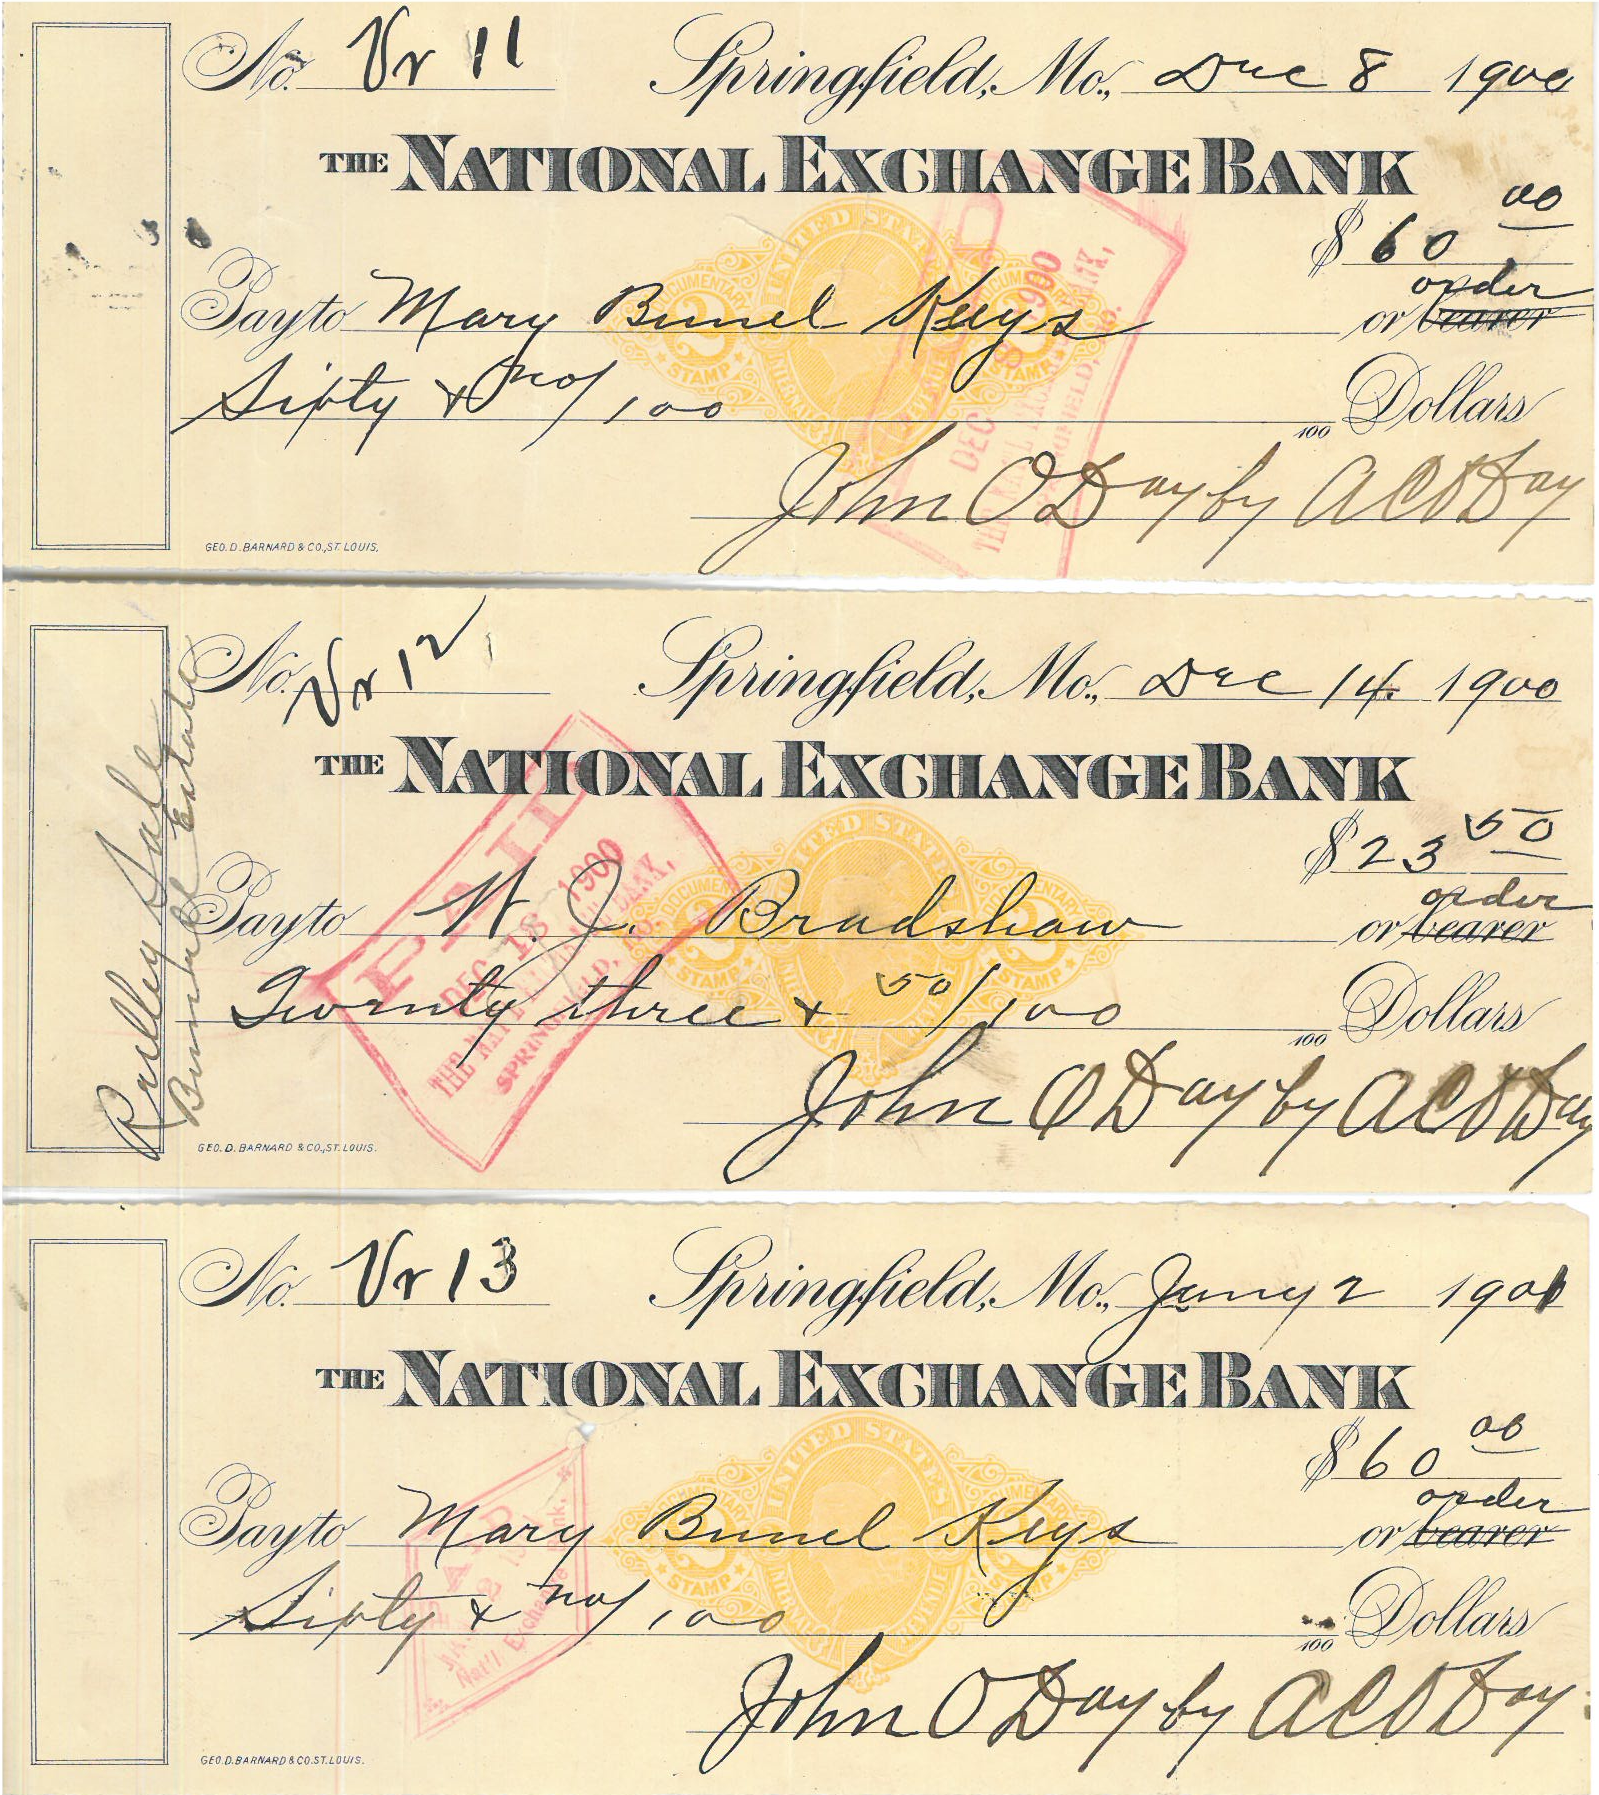 No. Vr 11 Springfield, Mo., Dec 8 1900
THE NATIONAL EXCHANGE BANK
$ 60 00
Pay to Mary Bunel Keys or bearer order
Sixty & no/100 100 Dollars
John O Day by A C O Day
GEO. D. BARNARD & CO., ST. LOUIS.
UNITED STATES
DOCUMENTARY
2 2
STAMP
INTERNAL REVENUE
DEC 8 1900
No. Vr 12 Springfield, Mo., Dec 14 1900
THE NATIONAL EXCHANGE BANK
$ 23 50
Pay to W. J. Bradshaw or bearer order
Twenty three & 50/100 100 Dollars
John O Day by A C O Day
GEO. D. BARNARD & CO., ST. LOUIS.
Estate
UNITED STATES
DOCUMENTARY
2 2
STAMP STAMP
PAID
DEC 18 1900
THE NAT'L EXCHANGE BANK,
SPRINGFIELD, MO.
No. Vr 13 Springfield, Mo., Jany 2 1901
THE NATIONAL EXCHANGE BANK
$ 60 00
Pay to Mary Bunel Keys or bearer order
Sixty & no/100 100 Dollars
John O Day by A C O Day
GEO. D. BARNARD & CO. ST. LOUIS.
UNITED STATES
DOCUMENTARY
2 2
STAMP STAMP
INTERNAL REVENUE
Nat'l Exchange Bank